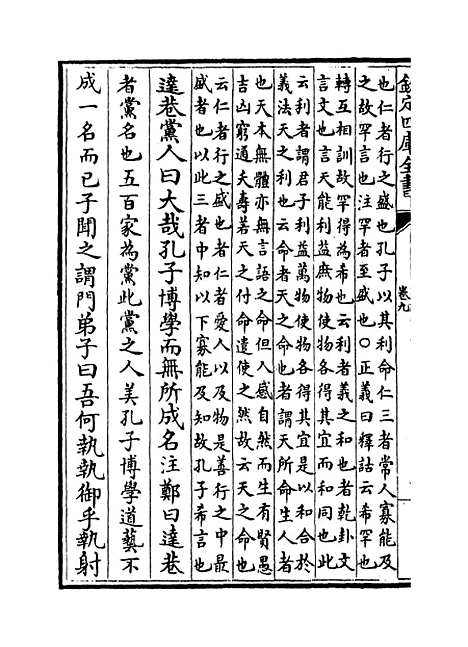 欽定四庫全書
卷九
也仁者行之盛也孔子以其利命仁三者常人寡能及
之故罕言也注罕者至盛也○正義曰釋詁云希罕也
轉互相訓故罕得為希也云利者義之和也者乾卦文
言文也言天能利益庶物使物各得其宜而和同也此
云利者謂君子利益萬物使物各得其宜是以和合於
義法天之利也云命者天之命也者謂天所命生人者
也天本無體亦無言語之命但人感自然而生有賢愚
吉凶窮通夭壽若天之付命遣使之然故云天之命也
云仁者行之盛也者仁者愛人以及物是善行之中最
盛者也以此三者中知以下寡能及知故孔子希言也
達巷黨人曰大哉孔子博學而無所成名注鄭曰達巷
者黨名也五百家為黨此黨之人美孔子博學道藝不
成一名而已子聞之謂門弟子曰吾何執執御乎執射